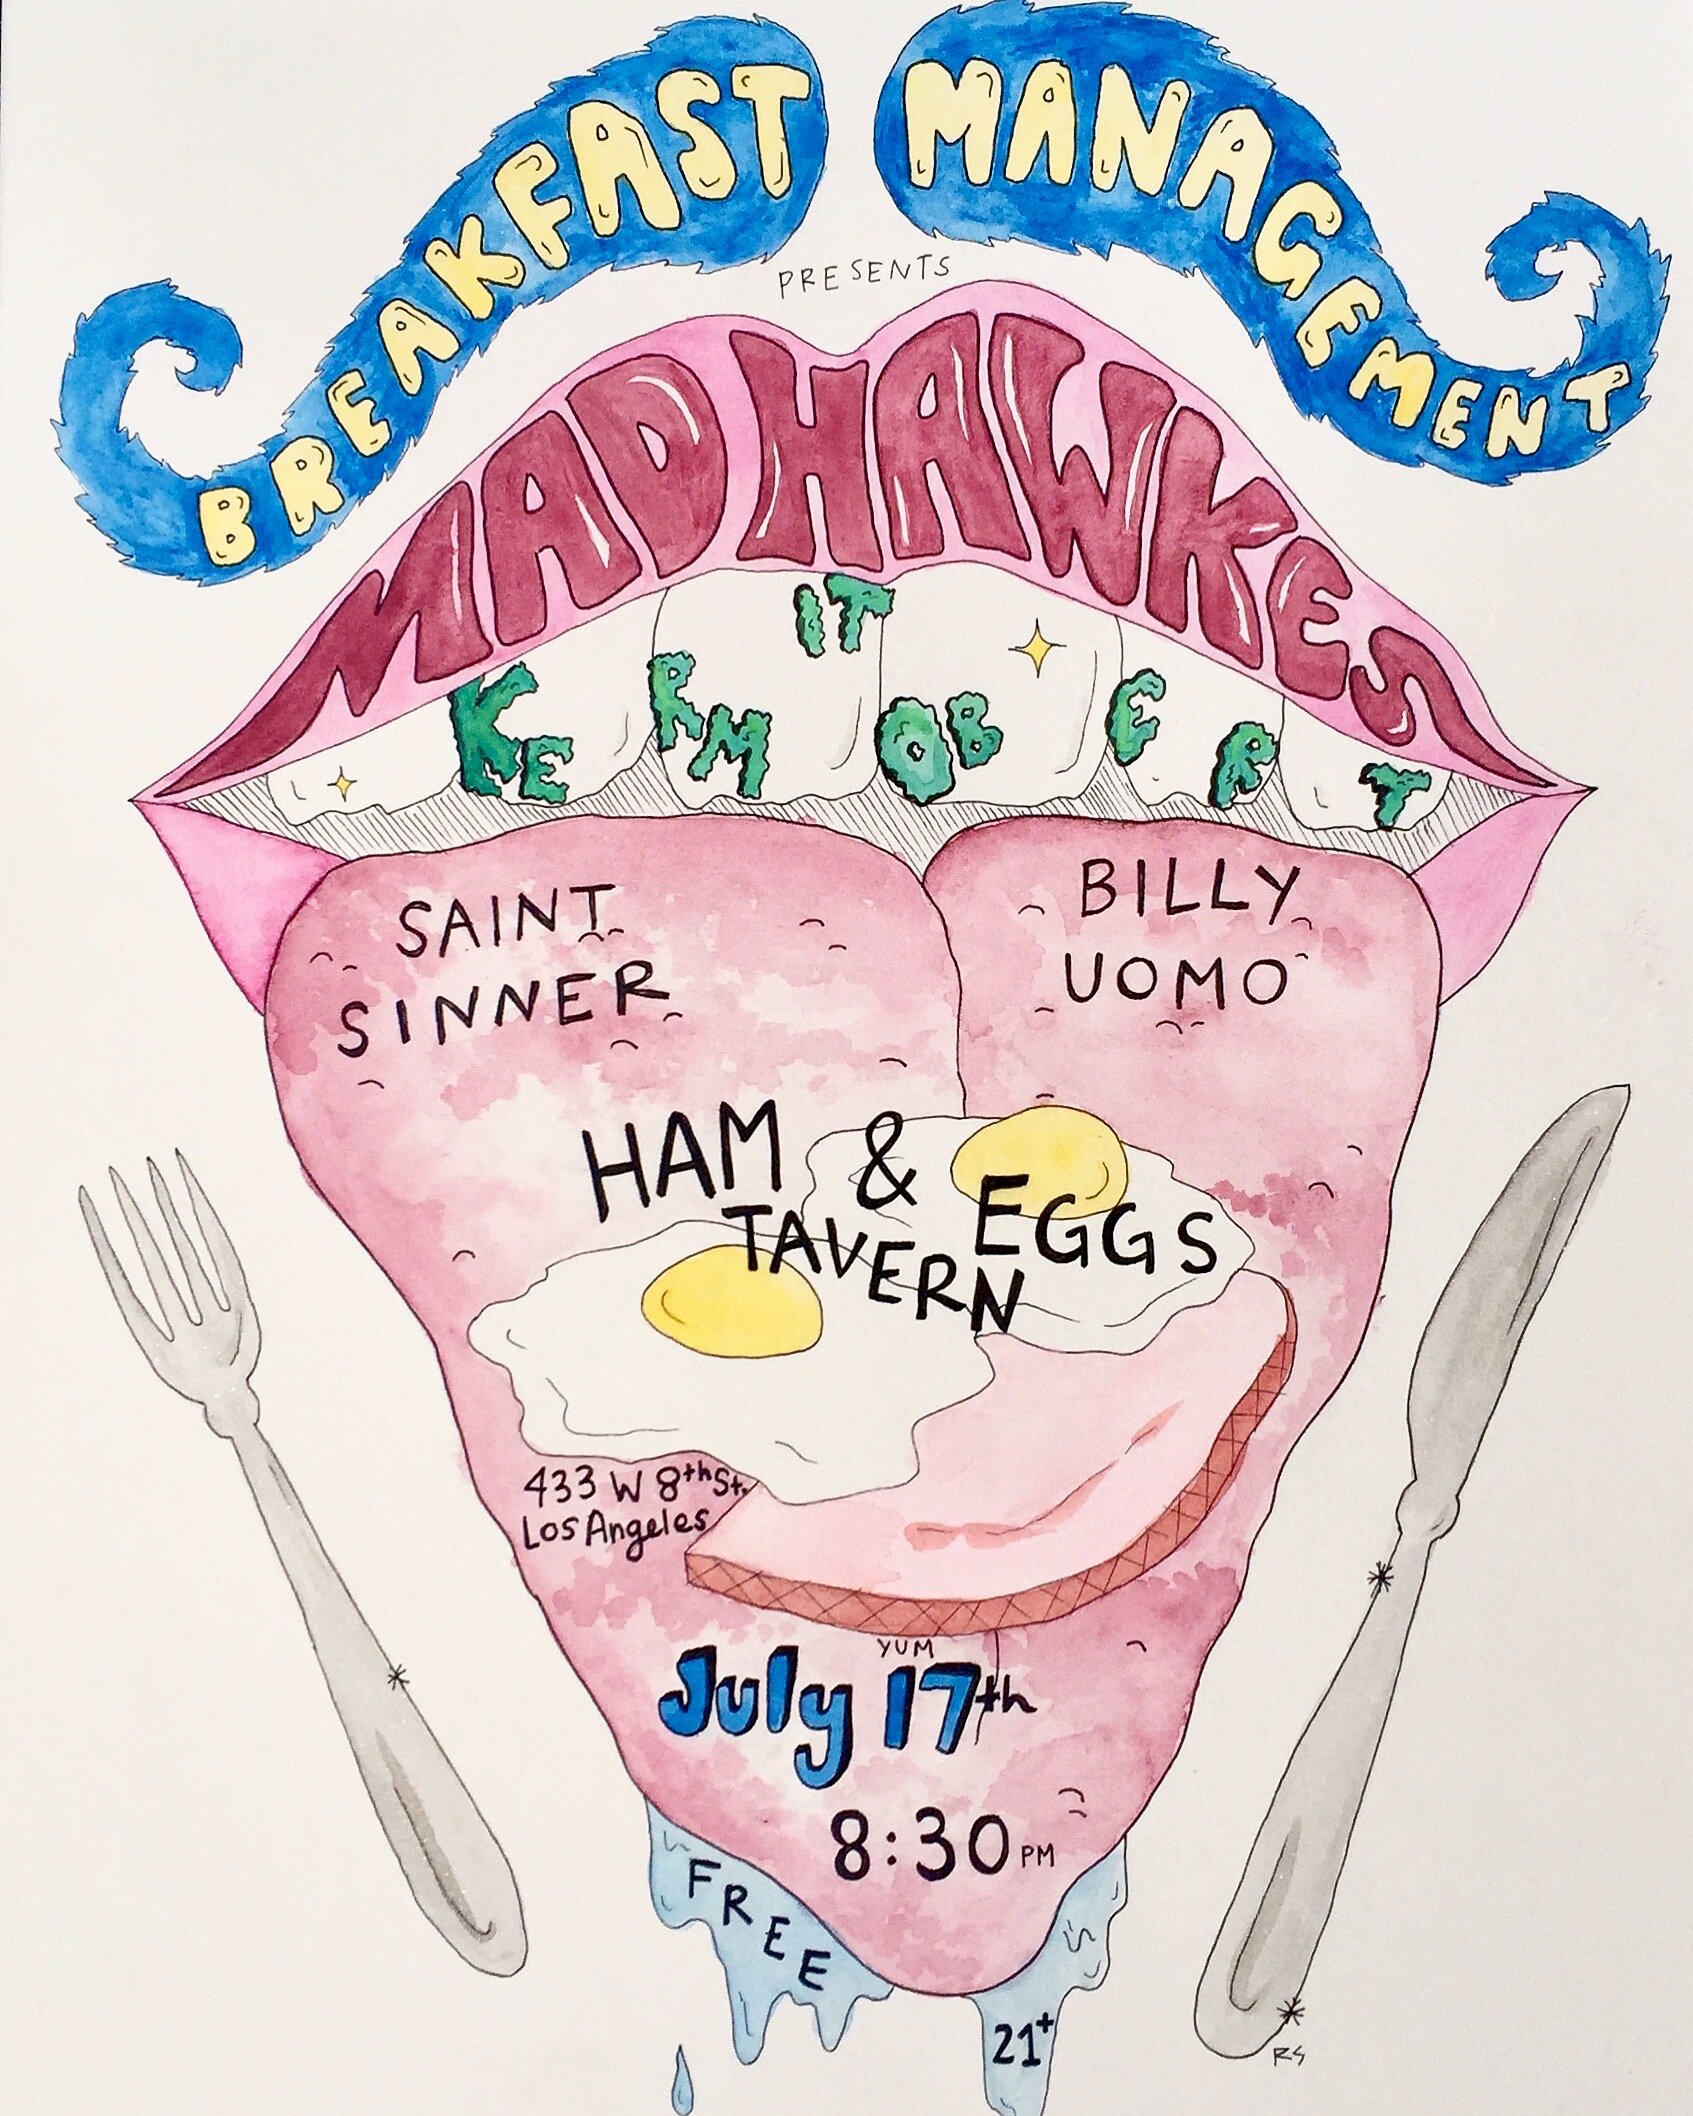 BREAKFAST MANAGEMENT
PRESENTS
MAD HAWKES
KERMIT OBERT
SAINT
SINNER
BILLY
UOMO
HAM & EGGS
TAVERN
433 W 8th St.
Los Angeles
YUM
July 17th
8:30 PM
FREE
21+
RS